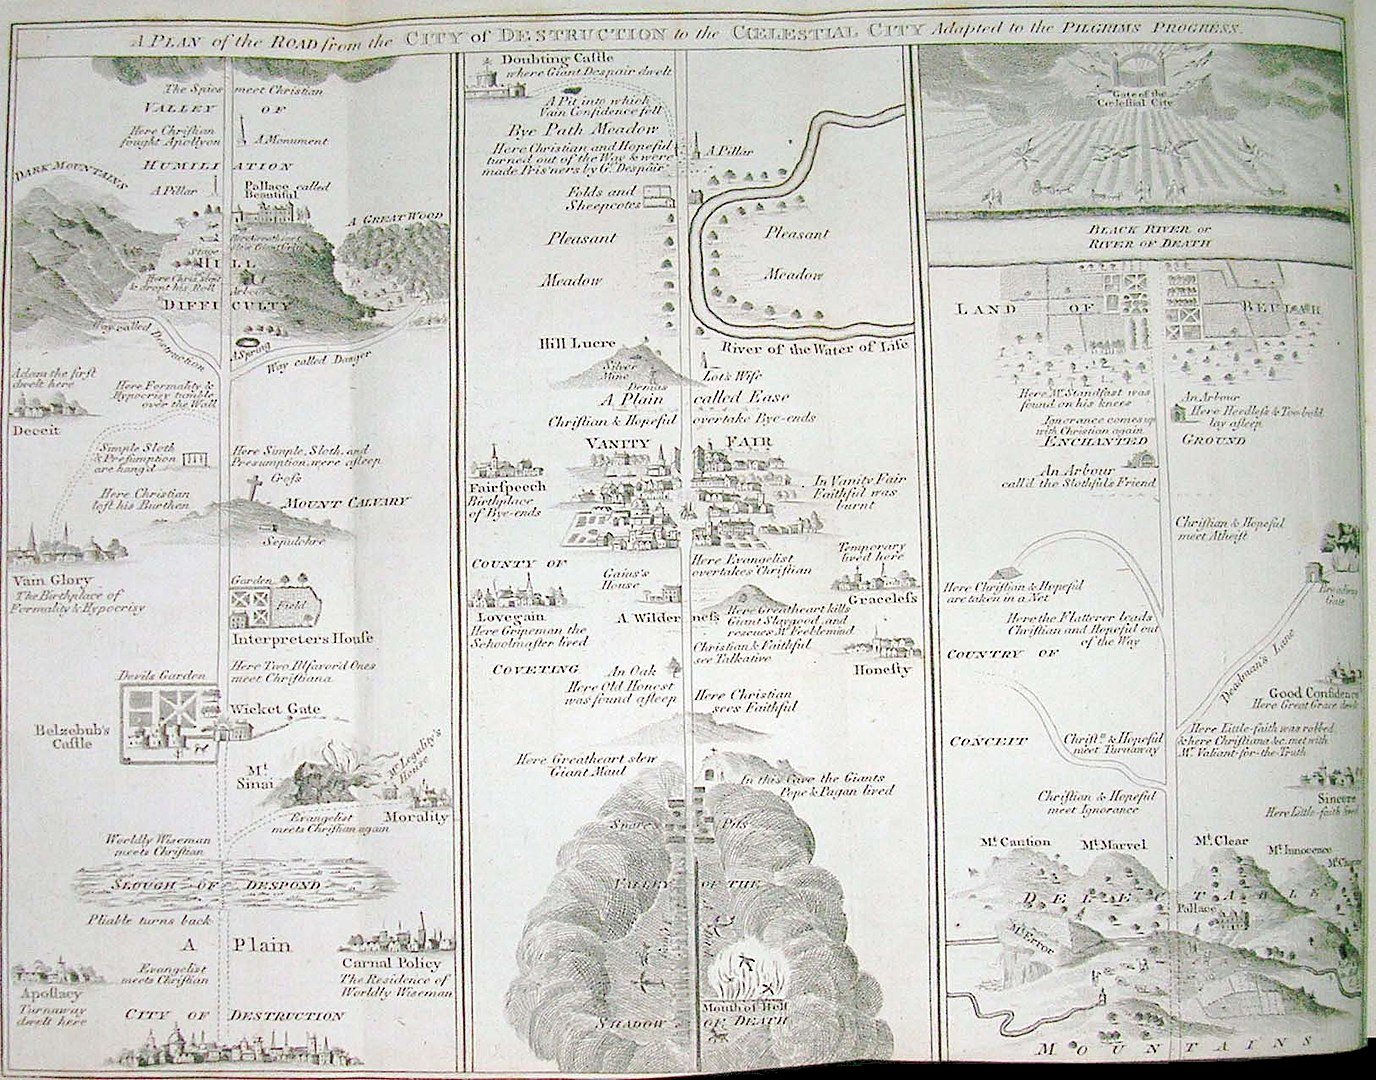 A PLAN of the ROAD from the CITY of DESTRUCTION to the CŒLESTIAL CITY Adapted to the PILGRIMS PROGRESS.
The Spies meet Christian
VALLEY OF
Here Chriſtian
fought Apollyon
A Monument
HUMILIATION
DARK MOUNTAINS
A Pillar
Pallace called
Beautiful
A GREAT WOOD
HILL
& dropt his Roll
DIFFICULTY
Way called Destruction
A Spring
Way called Danger
Adam the firſt
dwelt here
Deceit
Here Formality &
Hypocrisy tumble
over the Wall
Simple Sloth
& Preſumption
are hang'd
Here Simple, Sloth, and
Preſumption were aſleep
Croſs
Here Chriſtian
loſt his Burthen
MOUNT CALVARY
Sepulchre
Vain Glory
The Birthplace of
Formality & Hypocrisy
Garden
Field
Interpreters Houſe
Here Two Ilfavor'd Ones
meet Chriſtiana
Devils Garden
Wicket Gate
Belzebub's
Caſtle
Mt. Sinai
Mr. Legality's
Houſe
Evangelist
meets Chriſtian again
Morality
Worldly Wiseman
meets Chriſtian
SLOUGH OF DESPOND
Pliable turns back
A Plain
Evangelist
meets Chriſtian
Carnal Policy
The Residence of
Worldly Wiseman
Apoſtacy
Turnaway
dwelt here
CITY OF DESTRUCTION
Doubting Caſtle
where Giant Deſpair dwelt
A Pit into which
Vain Confidence fell
Bye Path Meadow
Here Christian and Hopeful
turned out of the Way & were
made Pris'ners by Gt. Deſpair
A Pillar
Folds and
Sheepcotes
Pleasant
Meadow
Pleasant
Meadow
Hill Lucre
River of the Water of Life
Silver
Mine
Demas
Lot's Wife
A Plain called Ease
Chriſtian & Hopeful overtake Bye-ends
VANITY FAIR
Fairſpeech
Birthplace
of Bye-ends
In Vanity Fair
Faithful was
burnt
COUNTY OF
Here Evangelist
overtakes Chriſtian
Temporary
lived here
Gaius's
Houſe
Graceleſs
Lovegain
Here Gripeman the
Schoolmaſter lived
A Wilderneſs
Here Greatheart kills
Giant Slaygood and
rescues Mr. Feeblemind
Chriſtian & Faithful
see Talkative
Honeſty
COVETING
An Oak
Here Old Honest
was found aſleep
Here Chriſtian
sees Faithful
Here Greatheart slew
Giant Maul
In this Cave the Giants
Pope & Pagan lived
Snares
Pits
VALLEY OF THE
Mouth of Hell
SHADOW OF DEATH
Gate of the
Cœleſtial City
BLACK RIVER or
RIVER OF DEATH
LAND OF BEULAH
Here Mr. Standfast was
found on his knees
An Arbour
Here Heedleſs & Too-bold
lay aſleep
Ignorance comes up
with Chriſtian again
ENCHANTED GROUND
An Arbour
call'd the Slothfuls Friend
Chriſtian & Hopeful
meet Atheiſt
Here Chriſtian & Hopeful
are taken in a Net
Here the Flatterer leads
Chriſtian and Hopeful out
of the Way
Gate
COUNTRY OF
Deadman's Lane
Good Confidence
Here Great Grace dwelt
CONCEIT
Chriſtn. & Hopeful
meet Turnaway
Here Little-faith was robbed
& here Chriſtiana &c. met with
Mr. Valiant-for-the-Truth
Chriſtian & Hopeful
meet Ignorance
Sincere
Here Little-faith lived
Mt. Caution
Mt. Marvel
Mt. Clear
Mt. Innocence
DELECTABLE
Pallace
Mt. Error
MOUNTAINS